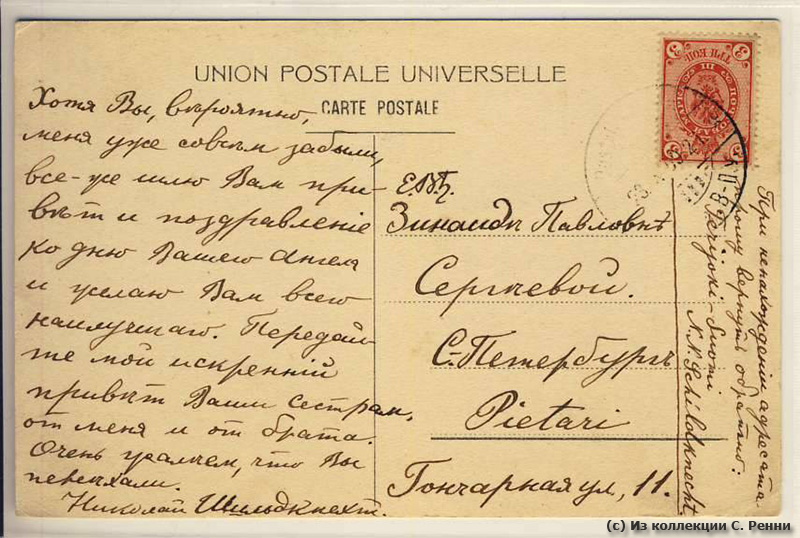 UNION POSTALE UNIVERSELLE
CARTE POSTALE
Хотя Вы, вѣроятно,
меня уже совсѣм забыли,
все-же шлю Вам при-
вѣт и поздравленіе
ко дню Вашего Ангела
и желаю Вам всего
наилучшаго. Передай-
те мой искренній
привѣт Вашим сестрам,
от меня и от брата.
Очень жалѣем, что Вы
переѣхали.
Николай Шильдкнехт.
Е.В.Б.
Зинаидѣ Павловнѣ
Сергѣевой.
С-Петербургъ
Pietari
Гончарная ул, 11.
При ненахожденіи адресата
прошу вернуть обратно:
Terijoki-Suomi
N.N. Schildknecht.
3 3
ТРИ КОП
3 3
(c) Из коллекции С. Ренни